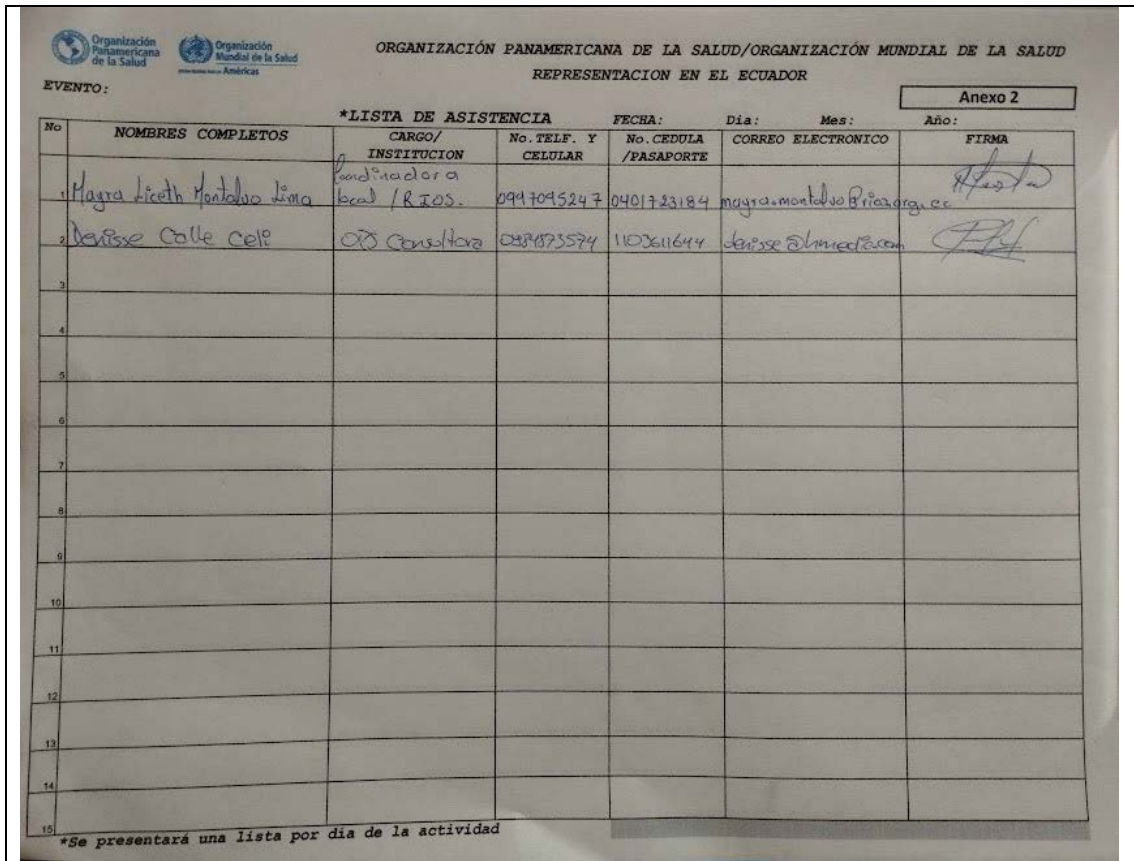 Organización
Panamericana
de la Salud
Organización
Mundial de la Salud
Américas
ORGANIZACIÓN PANAMERICANA DE LA SALUD/ORGANIZACIÓN MUNDIAL DE LA SALUD
REPRESENTACION EN EL ECUADOR
EVENTO:
Anexo 2
*LISTA DE ASISTENCIA FECHA: Dia: Mes: Año:
No NOMBRES COMPLETOS CARGO/ INSTITUCION No.TELF. Y CELULAR No.CEDULA /PASAPORTE CORREO ELECTRONICO FIRMA
1 Mayra Liceth Montalvo Lima Coordinadora local / RIOS. 0997095247 0401723184 mayra.montalvo@rios.org.ec
2 Denisse Calle Celi OPS Consultora 0984873574 1103611644 denisse@hmedia.com
3
4
5
6
7
8
9
10
11
12
13
14
15
*Se presentará una lista por dia de la actividad